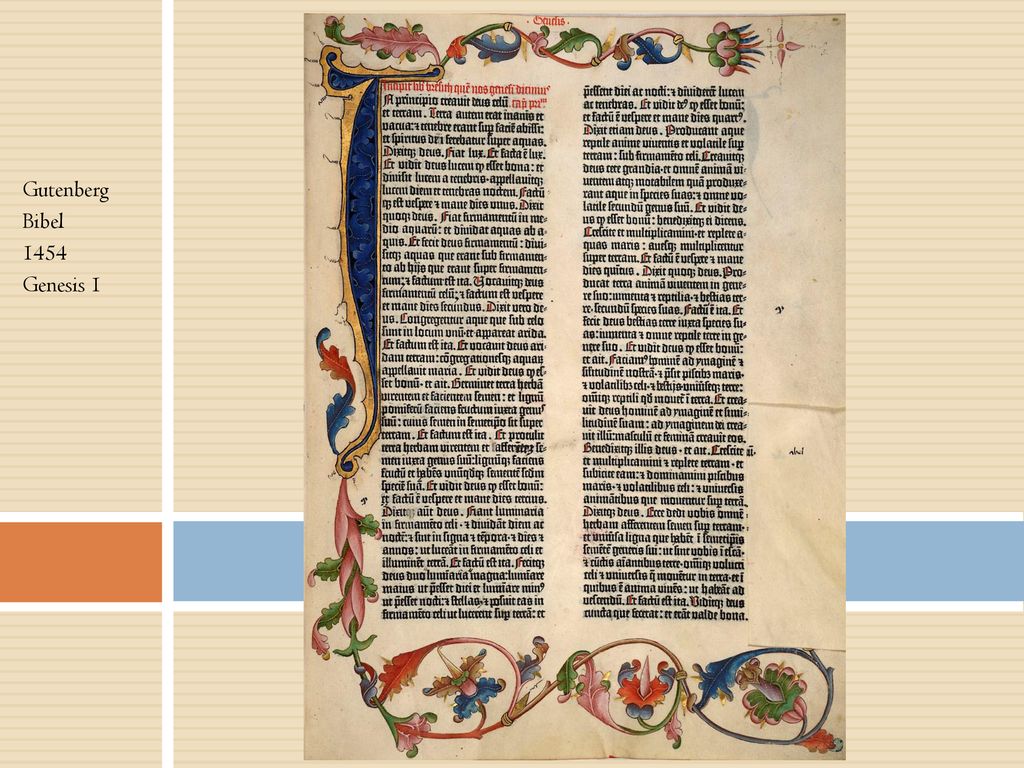 Gutenberg
Bibel
1454
Genesis 1
Genesis.
Incipit liber bresith quē nos genesī dicimus
In principio creavit deus celū
et terram. Terra autem erat inanis et
vacua: et tenebre erant sup faciē abissi:
et spiritus dñi ferebatur super aquas.
Dixitqȝ deus. Fiat lux. Et facta ē lux.
Et vidit deus lucem esset bona: et
divisit lucem a tenebris appellavitqȝ
lucem diem et tenebras noctem. Factūqȝ
est vespere et mane dies unus. Dixit
quoqȝ deus. Fiat firmamentū in me-
dio aquarū: et dividat aquas ab a-
quis. Et fecit deus firmamentū: divi-
sitqȝ aquas que erant sub firmamen-
to ab hijs que erant super firmamen-
tum: et factum est ita. Vocavitqȝ deus
firmamentū celū: et factum est vespere
et mane dies secundus. Dixit vero de-
us. Congregentur aque que sub celo
sunt in locum unū et appareat arida.
Et factum est ita. Et vocavit deus ari-
dam terram: cōgregationesqȝ aquarū
appellavit maria. Et vidit deus es-
set bonū et ait. Germinet terra herbā
virentem et facientem semen: et lignū
pomiferū faciens fructum iuxta genus
suū: cuius semen in semetipso sit super
terram. Et factum est ita. Et protulit
terra herbam virentem et
men iuxta genus suū: lignūqȝ faciens
fructū et habēs unūqdqȝ sementē scdm
speciē suā. Et vidit deus esset bonū:
et factū ē vespere et mane dies tercius.
Dixitqȝ deus. Fiant luminaria
in firmamēto celi et dividāt diem ac
noctē: et sint in signa et tēpora et dies et
annos: ut luceāt in firmamēto celi et
illuminēt terrā. Et factū est ita. Fecitqȝ
deus duo luminaria magna: luminare
maius ut pesset diei et luminare minus
ut pesset nocti: et stellas et posuit eas in
firmamēto celi ut lucerent sup terrā: et
pessent diei ac nocti: et dividerēt lucem
ac tenebras. Et vidit deus esset bonū:
et factū ē vespere et mane dies quartus.
Dixit etiam deus. Producant aque
reptile anime viventis et volatile sup
terram: sub firmamēto celi. Creavitqȝ
deus cete grandia et omnē animā vi-
ventem atqȝ motabilem quā produxe-
rant aque in species suas: et omne vo-
latile secundū genus suū. Et vidit de-
us esset bonū: benedixitqȝ ei dicens.
Crescite et multiplicamini et replete a-
quas maris: avesqȝ multiplicentur
super terram. Et factū ē vespere et mane
dies quītus. Dixit quoqȝ deus. Pro-
ducat terra animā viventem in gene-
re suo: iumenta et reptilia et bestias ter-
re secundū species suas. Factū ē ita. Et
fecit deus bestias terre iuxta species su-
as: iumenta et omne reptile terre in ge-
nere suo. Et vidit deus esset bonū:
et ait. Faciamus hominē ad ymaginē et
similitudinē nostrā et psit piscibus maris
et volatilibus celi et bestijs universeqȝ terre:
omīqȝ reptili qd movet ī terra. Et crea-
vit deus hominē ad ymaginē et simi-
litudinē suam: ad ymaginem dei crea-
vit illū: masculū et feminā creavit eos.
Benedixitqȝ illis deus et ait. Crescite
et multiplicamini et replete terram et
subicite eam: et dominamini piscibus
maris et volatilibus celi: et universis
animātibus que moventur sup terrā.
Dixitqȝ deus. Ecce dedi vobis omnē
herbam afferentem semen sup terram
et universa ligna que habēt ī semetipis
semētē generis sui: ut sint vobis ī escā
et cūctis aīantibus terre omīqȝ volucri
celi et universis q movētur in terra et ī
quibus ē anima vivēs: ut habeāt ad
vescendū. Et factū est ita. Viditqȝ deus
cuncta que fecerat: et erāt valde bona.